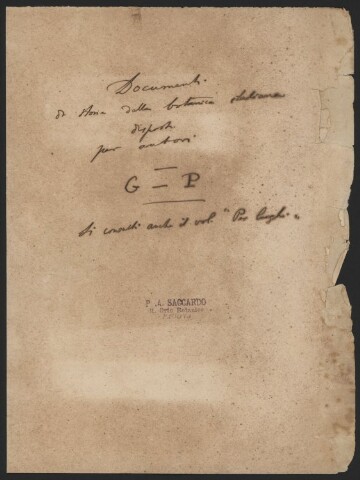 Documenti
di storia della botanica italiana
disposti
per autori
G — P
Si consulti anche il vol. "Per luoghi"
P. A. SACCARDO
R. Orto Botanico
PADOVA